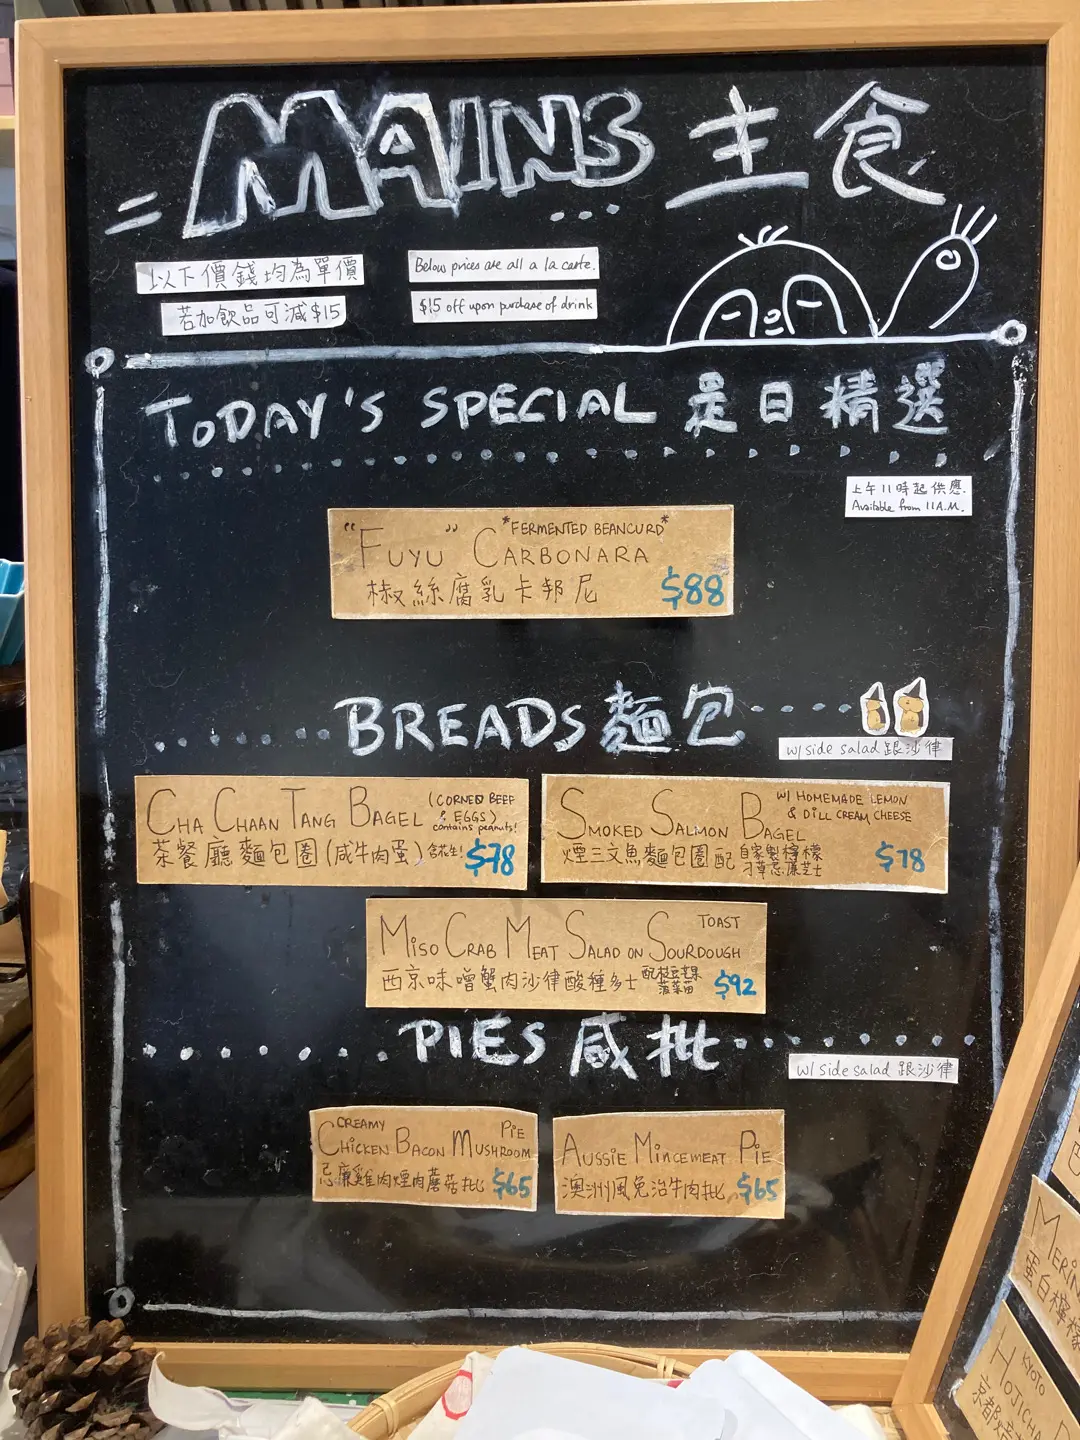 MAINS 主食
以下價錢均為單價
若加飲品可減$15
Below prices are all a la carte.
$15 off upon purchase of drink
TODAY'S SPECIAL 是日精選
上午11時起供應.
Available from 11A.M.
"FUYU" *FERMENTED BEANCURD* CARBONARA
椒絲腐乳卡邦尼 $88
BREADS 麵包
w/ side salad 跟沙律
CHA CHAAN TANG BAGEL (CORNED BEEF & EGGS) contains peanuts!
茶餐廳麵包圈(咸牛肉蛋) 含花生! $78
SMOKED SALMON BAGEL W/ HOMEMADE LEMON & DILL CREAM CHEESE
煙三文魚麵包圈配自家製檸檬刁草忌廉芝士 $78
MISO CRAB MEAT SALAD ON SOURDOUGH TOAST
西京味噌蟹肉沙律酸種多士 $92
PIES 咸批
w/ side salad 跟沙律
CREAMY CHICKEN BACON MUSHROOM PIE
忌廉雞肉煙肉蘑菇批 $65
AUSSIE MINCEMEAT PIE
澳洲風免治牛肉批 $65
MERIN
蛋白檸檬
KYOTO
HOJICHA
京都焙